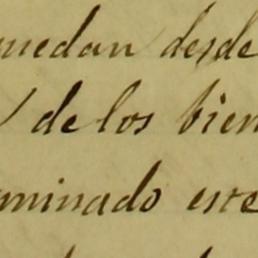 quedan desde
de los bien
minado este